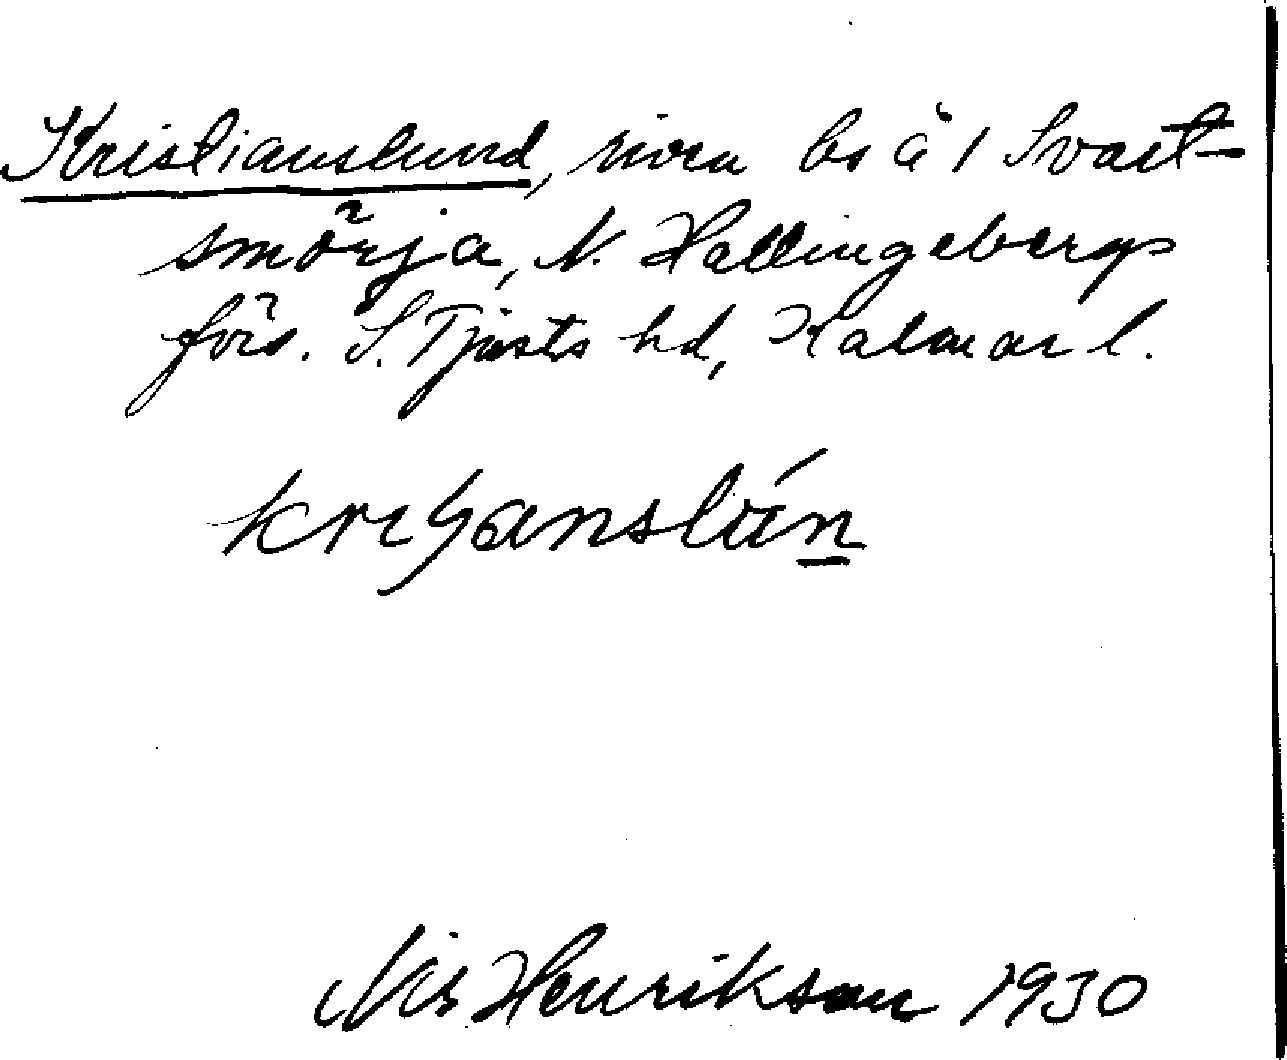 Kristianslund, riven bs å 1 Svart-
smörja, N. Hallingebergs
förs. S. Tjusts hd, Kalmar l.
Nils Henrikson 1930